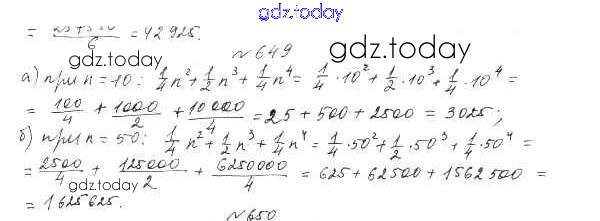 gdz.today
= 257550/6 = 42925.
№649
gdz.today
а) при n=10: 1/4 n² + 1/2 n³ + 1/4 n⁴ = 1/4 · 10² + 1/2 · 10³ + 1/4 · 10⁴ =
= 100/4 + 1000/2 + 10000/4 = 25 + 500 + 2500 = 3025;
б) при n=50: 1/4 n² + 1/2 n³ + 1/4 n⁴ = 1/4 · 50² + 1/2 · 50³ + 1/4 · 50⁴ =
= 2500/4 + 125000/2 + 6250000/4 = 625 + 62500 + 1562500 =
gdz.today
= 1625625.
№650